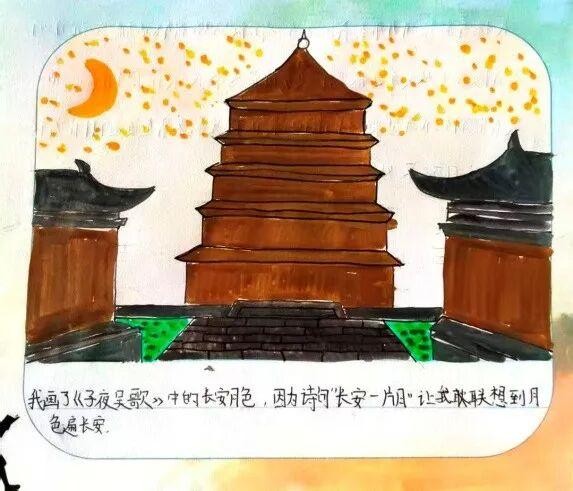 我画了《子夜吴歌》中的长安月色，因为诗句"长安一片月"让我联想到月
色遍长安.